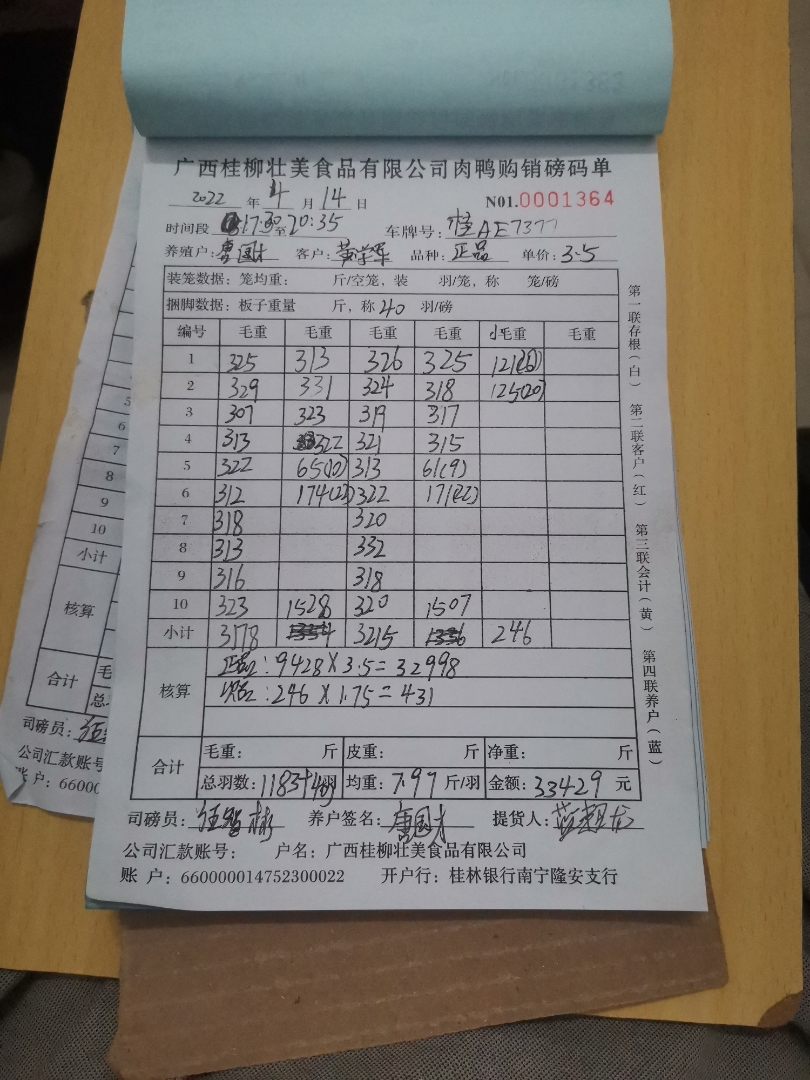 广西桂柳壮美食品有限公司肉鸭购销磅码单
2022 年 4 月 14 日 N01.0001364
时间段 17:30至20:35 车牌号: 桂AE7377
养殖户: 唐国才 客户: 黄学军 品种: 正品 单价: 3.5
装笼数据: 笼均重: 斤/空笼, 装 羽/笼, 称 笼/磅
捆脚数据: 板子重量 斤, 称 40 羽/磅
编号 毛重 毛重 毛重 毛重 毛重 毛重
1 325 313 326 325 121(20)
2 329 331 324 318 125(20)
3 307 323 319 317
4 313 322 321 315
5 322 65(10) 313 61(9)
6 312 174(22) 322 171(22)
7 318 320
8 313 332
9 316 318
10 323 1528 320 1507
小计 3178 3215 246
核算 正品: 9428×3.5=32998
次品: 246×1.75=431
合计 毛重: 斤 皮重: 斤 净重: 斤
总羽数: 1183+40羽 均重: 7.97 斤/羽 金额: 33429 元
司磅员: 养户签名: 唐国才 提货人:
公司汇款账号: 户名: 广西桂柳壮美食品有限公司
账 户: 660000014752300022 开户行: 桂林银行南宁隆安支行
第一联存根(白) 第二联客户(红) 第三联会计(黄) 第四联养户(蓝)
5
6
7
8
9
10
小计
核算
合计 毛
总
司磅员:
公司汇款账号
账 户: 66000